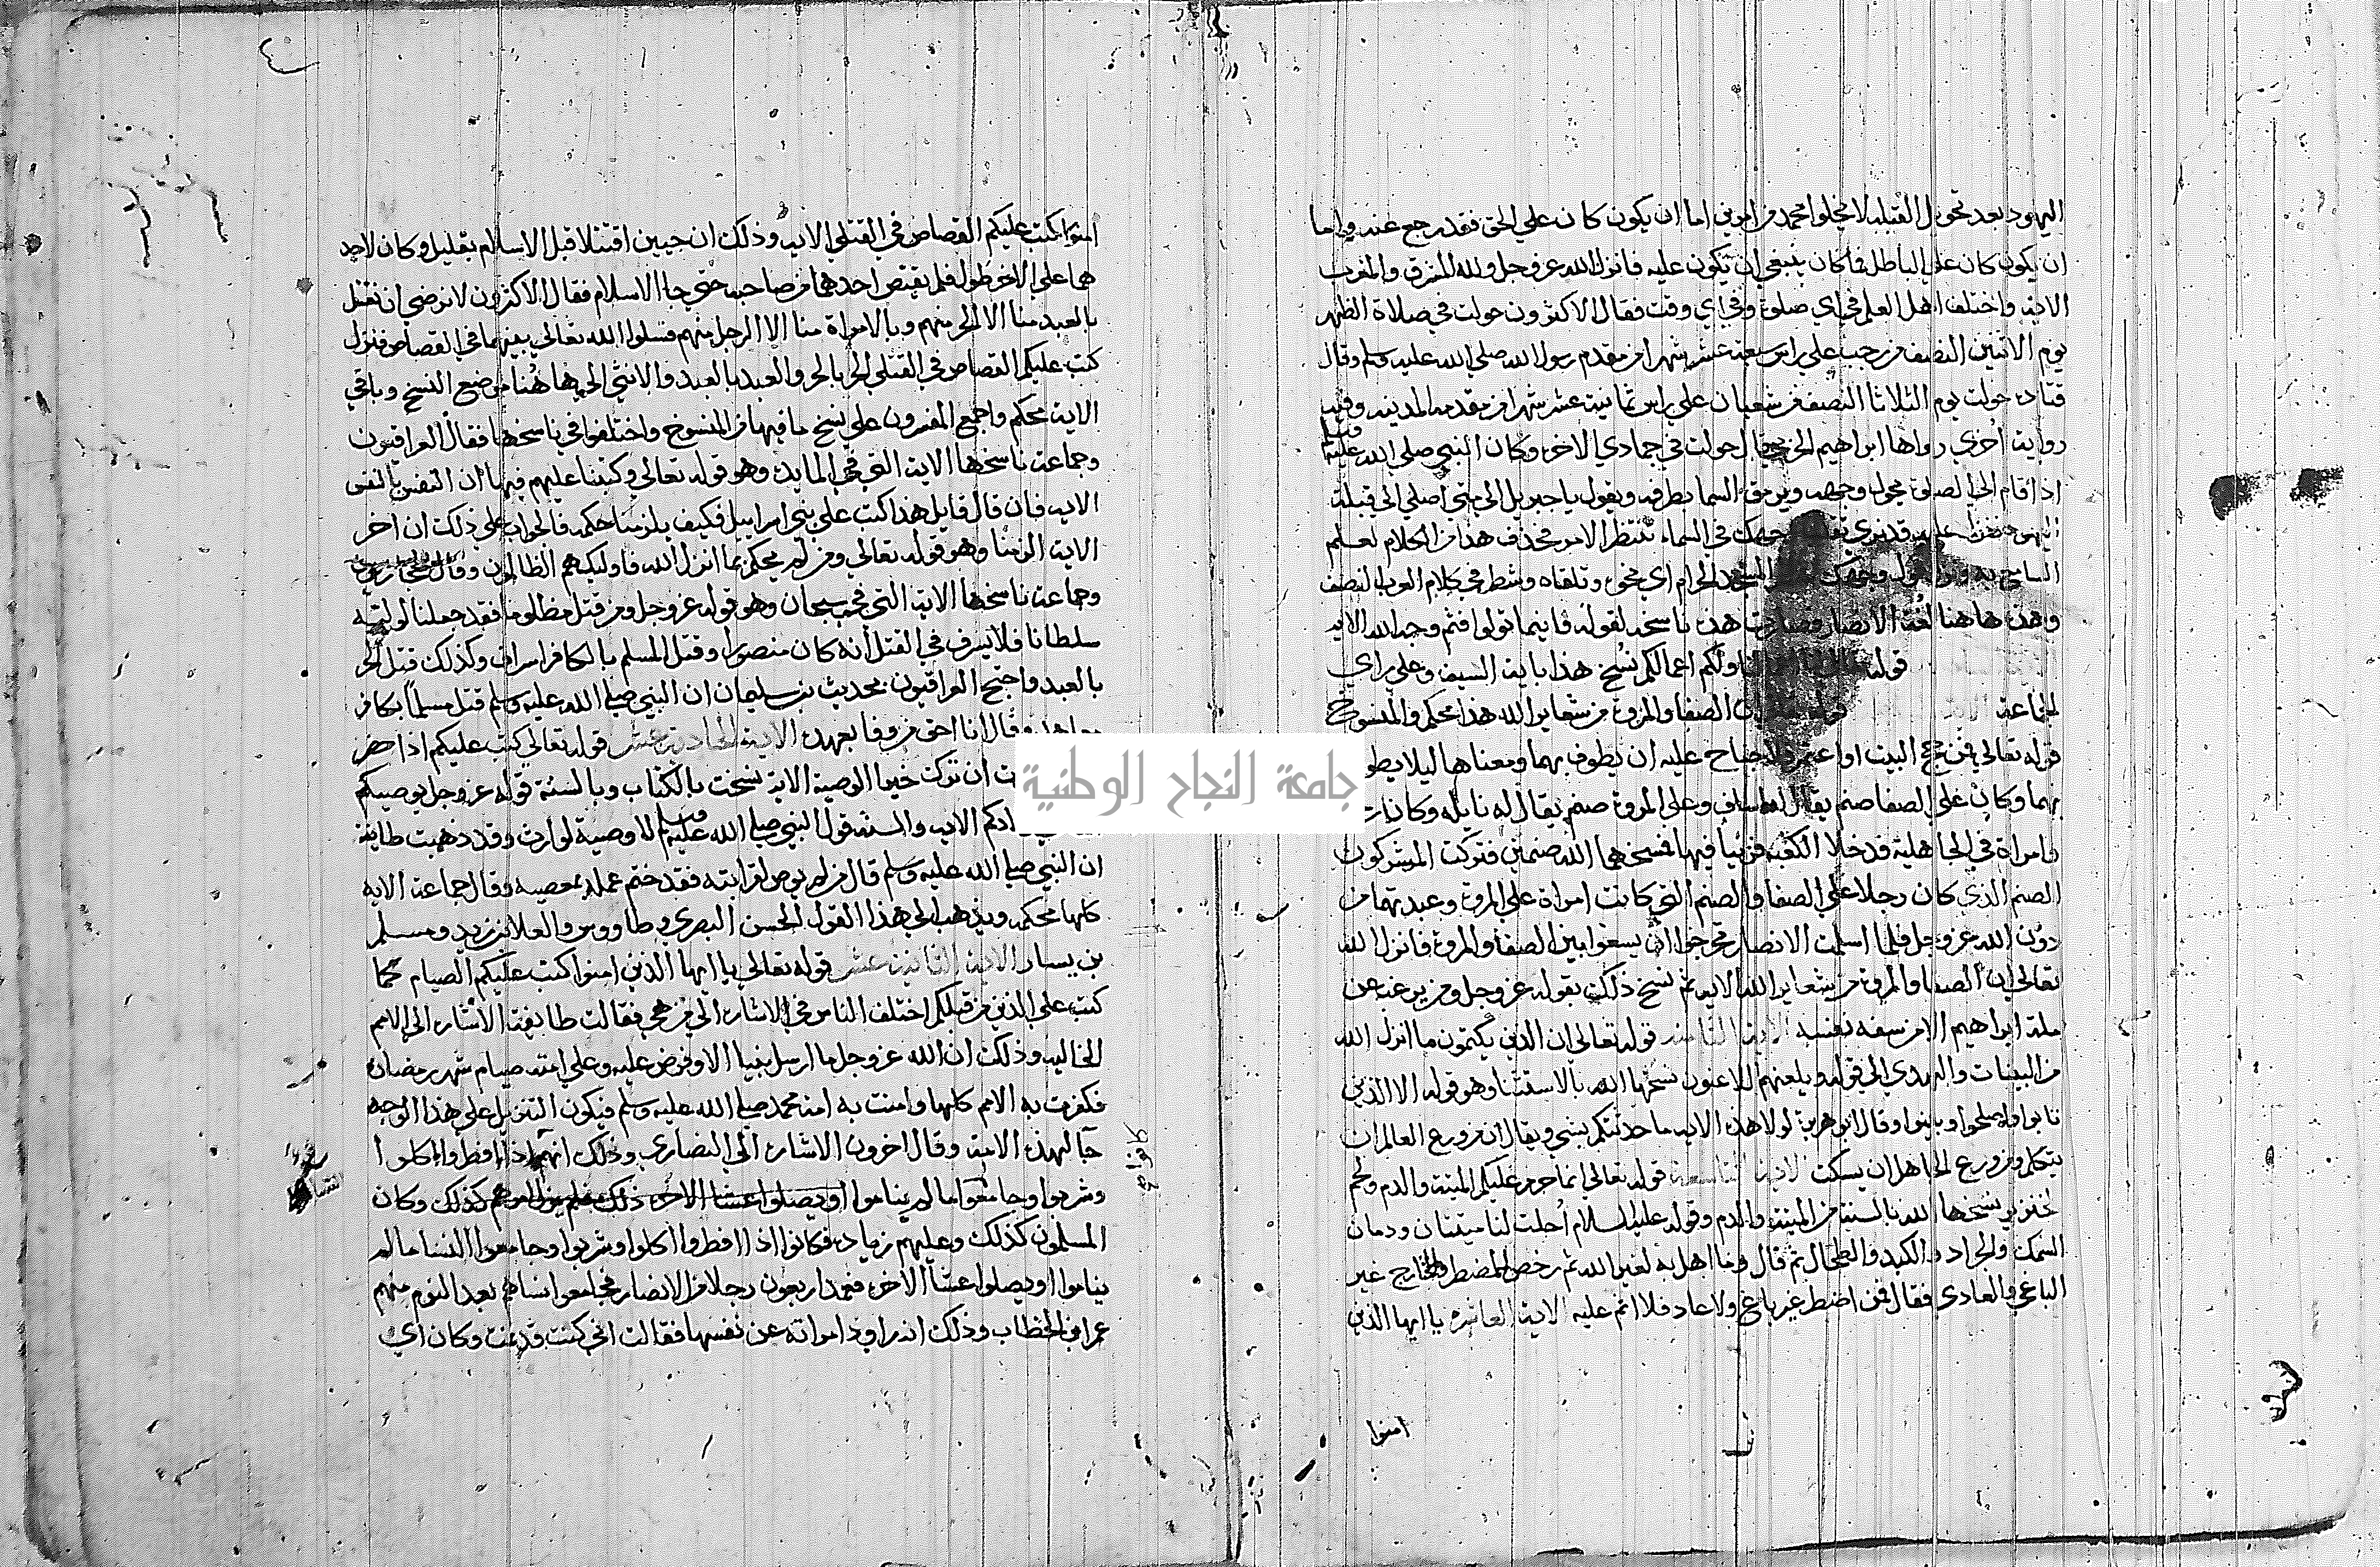 اليهود بعد تحويل القبله لا يخلوا محمد من امرين اما ان يكون كان علي الحق فقد رجع عنه واما
ان يكون كان علي الباطل فما كان ينبغي ان يكون عليه فانزل الله عز وجل ولله المشرق والمغرب
الايه واختلف اهل العلم في اي صلوة وفي اي وقت فقال الاكثرون حولت في صلاة الظهر
يوم الاثنين النصف من رجب علي راس سبعة عشر شهرا من مقدم رسول الله صلي الله عليه وسلم وقال
قتاده حولت يوم الثلاثا النصف من شعبان علي راس ثمانية عشر شهرا من مقدمه المدينه وفيه
رواية اخري رواها ابراهيم الحربي قال حولت في جمادي الاخره وكان النبي صلي الله عليه وسلم
اذا قام الي الصلوة يحول وجهه ويرمق السما بطرفه ويقول يا جبريل الي متي اصلي الي قبلة
اليهود قد نري تقلب وجهك في السماء تنتظر الامر فحذف هذا من الكلام لعلم
السامع به فول وجهك شطر المسجد الحرام اي نحوه وتلقاه وشطر في كلام العرب النصف
وهذه هاهنا لغة الانصار فصارت هذه ناسخه لقوله فاينما تولوا فثم وجه الله الايه
قوله ولكم اعمالكم نسخ هذا باية السيف وعلي راي
الجماعة قوله ان الصفا والمروة من شعاير الله هذا محكم والمنسوخ
قوله تعالي فمن حج البيت او اعتمر فلا جناح عليه ان يطوف بهما ومعناها ليلا يطو
بهما وكان علي الصفا صنم يقال له اساف وعلي المروة صنم يقال له نايله وكانا
وامراة في الجاهلية قد خلا الكعبه فزنيا فيها فمسخهما الله صنمين فتركت المشركون
الصنم الذي كان رجلا علي الصفا والصنم التي كانت امراة علي المروة وعبدتهما من
دون الله عز وجل فلما اسلمت الانصار تحرجوا ان يسعوا بين الصفا والمروة فانزل الله
تعالي ان الصفا والمروة من شعاير الله الايه ثم نسخ ذلك بقوله عز وجل ومن يرغب عن
ملة ابراهيم الا من سفه نفسه الاية الثامنه قوله تعالي ان الذين يكتمون ما انزل الله
من البينات والهدي الي قوله ويلعنهم اللاعنون نسخها الله بالاستثنا وهو قوله الا الذين
تابوا واصلحوا وبينوا وقال ابو هريرة لولا هذه الايه ما حدثتكم بشي ويقال ان من ورع العالم ان
يتكلم ومن ورع الجاهل ان يسكت الاية التاسعة قوله تعالي انما حرم عليكم الميتة والدم ولحم
الخنزير نسخها الله بالسنة من الميتة والدم وقوله عليه السلام احلت لنا ميتتان ودمان
السمك والجراد والكبد والطحال ثم قال وما اهل به لغير الله ثم رخص للمضطر والخارج غير
الباغي والعادي فقال فمن اضطر غير باغ ولا عاد فلا اثم عليه الاية العاشرة يا ايها الذين
امنوا
امنوا كتب عليكم القصاص في القتلي الايه وذلك ان حيين اقتتلا قبل الاسلام بقليل وكان لاحد
هما علي الاخر طول فلم يقتص احدهما من صاحبه حتي جا الاسلام فقال الاكثرون لا نرضي ان نقتل
بالعبد منا الا الحر منهم وبالامراة منا الا الرجل منهم فسلوا الله تعالي بينهما في القصاص فنزل
كتب عليكم القصاص في القتلي الحر بالحر والعبد بالعبد والانثي الي هاهنا موضع النسخ وباقي
الاية محكم واجمع المفسرون علي نسخ ما فيها من المنسوخ واختلفوا في ناسخها فقال العراقيون
وجماعة ناسخها الاية التي في المايدة وهو قوله تعالي وكتبنا عليهم فيها ان النفس بالنفس
الايه فان قال قايل هذا كتب علي بني اسراييل فكيف يلزمنا حكمه فالجواب علي ذلك ان اخر
الاية الزمنا وهو قوله تعالي ومن لم يحكم بما انزل الله فاوليك هم الظالمون وقال الحجازيون
وجماعة ناسخها الاية التي في سبحان وهو قوله عز وجل ومن قتل مظلوما فقد جعلنا لوليه
سلطانا فلا يسرف في القتل انه كان منصورا وقتل المسلم بالكافر اسراف وكذلك قتل الحر
بالعبد واحتج العراقيون بحديث بن سليمان ان النبي صلي الله عليه وسلم قتل مسلما بكافر
وقال انا احق من وفا بعهده الاية الحادية عشر قوله تعالي كتب عليكم اذا حضر
ت ان ترك خيرا الوصية الاية نسخت بالكتاب وبالسنة قوله عز وجل يوصيكم
ادكم الايه والسنه قول النبي صلي الله عليه وسلم لا وصية لوارث وقد ذهبت طايفة
ان النبي صلي الله عليه وسلم قال من لم يوص لقرابته فقد ختم عمله بمعصية وقال جماعة الايه
كلها محكمه ويذهب الي هذا القول الحسن البصري وطاووس والعلا بن زيد ومسلم
بن يسار الاية الثانية عشر قوله تعالي يا ايها الذين امنوا كتب عليكم الصيام كما
كتب علي الذين من قبلكم اختلف الناس في الاشارة الي من هي فقالت طايفة الاشارة الي الامم
الخاليه وذلك ان الله عز وجل ما ارسل نبيا الا وفرض عليه وعلي امته صيام شهر رمضان
فكفرت به الامم كلها وامنت به امة محمد صلي الله عليه وسلم فيكون التنزيل علي هذا الوجه
لهذه الامة وقال اخرون الاشاره الي النصاري وذلك انهم اذا افطروا اكلوا
وشربوا وجامعوا ما لم يناموا او يصلوا عشا الاخره كذلك وكان
المسلمون كذلك وعليهم زيادة فكانوا اذا افطروا اكلوا وشربوا وجامعوا النسا ما لم
يناموا او يصلوا عشا الاخره فعمد اربعون رجلا من الانصار فجامعوا نساهم بعد النوم منهم
عمر بن الخطاب وذلك انه راود امراته عن نفسها فقالت اني كنت قد نمت وكان اي
جامعة النجاح الوطنية